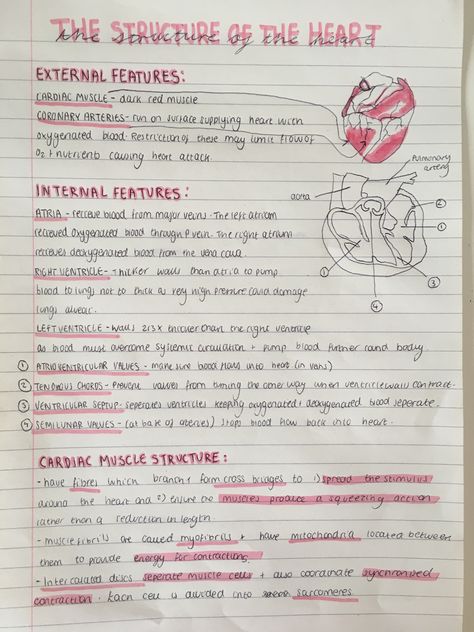 THE STRUCTURE OF THE HEART
the structure of the heart
EXTERNAL FEATURES:
CARDIAC MUSCLE - dark red muscle
CORONARY ARTERIES - run on surface supplying heart with
oxygenated blood. Restriction of these may limit flow of
O2 + nutrients causing heart attack.
Pulmonary
artery
aorta
INTERNAL FEATURES:
ATRIA - recieve blood from major veins. The left atrium
recieved oxygenated blood through P vein. The right atrium
recieves deoxygenated blood from the vena cava.
RIGHT VENTRICLE - Thicker walls than atria to pump
blood to lungs not to thick as very high pressure could damage
lungs alveoli.
LEFT VENTRICLE - walls 2/3x thicker than the right ventricle
as blood must overcome systemic circulation + pump blood further round body.
① ATRIOVENTRICULAR VALVES - make sure blood flows into heart (in vans)
② TENDONOUS CHORDS - Prevent valves from turning the other way when ventricle walls contract.
③ VENTRICULAR SEPTUP - seperates ventricles keeping oxygenated + deoxygenated blood seperate.
④ SEMILUNAR VALVES - (at base of ateries) stops blood flow back into heart.
② ① ① ③ ④
CARDIAC MUSCLE STRUCTURE:
- have fibres which branch + form cross bridges to 1) spread the stimulus
around the heart and 2) ensure the muscles produce a squeezing action
rather than a reduction in length.
- muscle fibrils are called myofibrils + have mitochondria located between
them to provide energy for contractions.
- Intercalated discs seperate muscle cells + also coordinate synchronised
contraction. Each cell is divided into sarcomeres